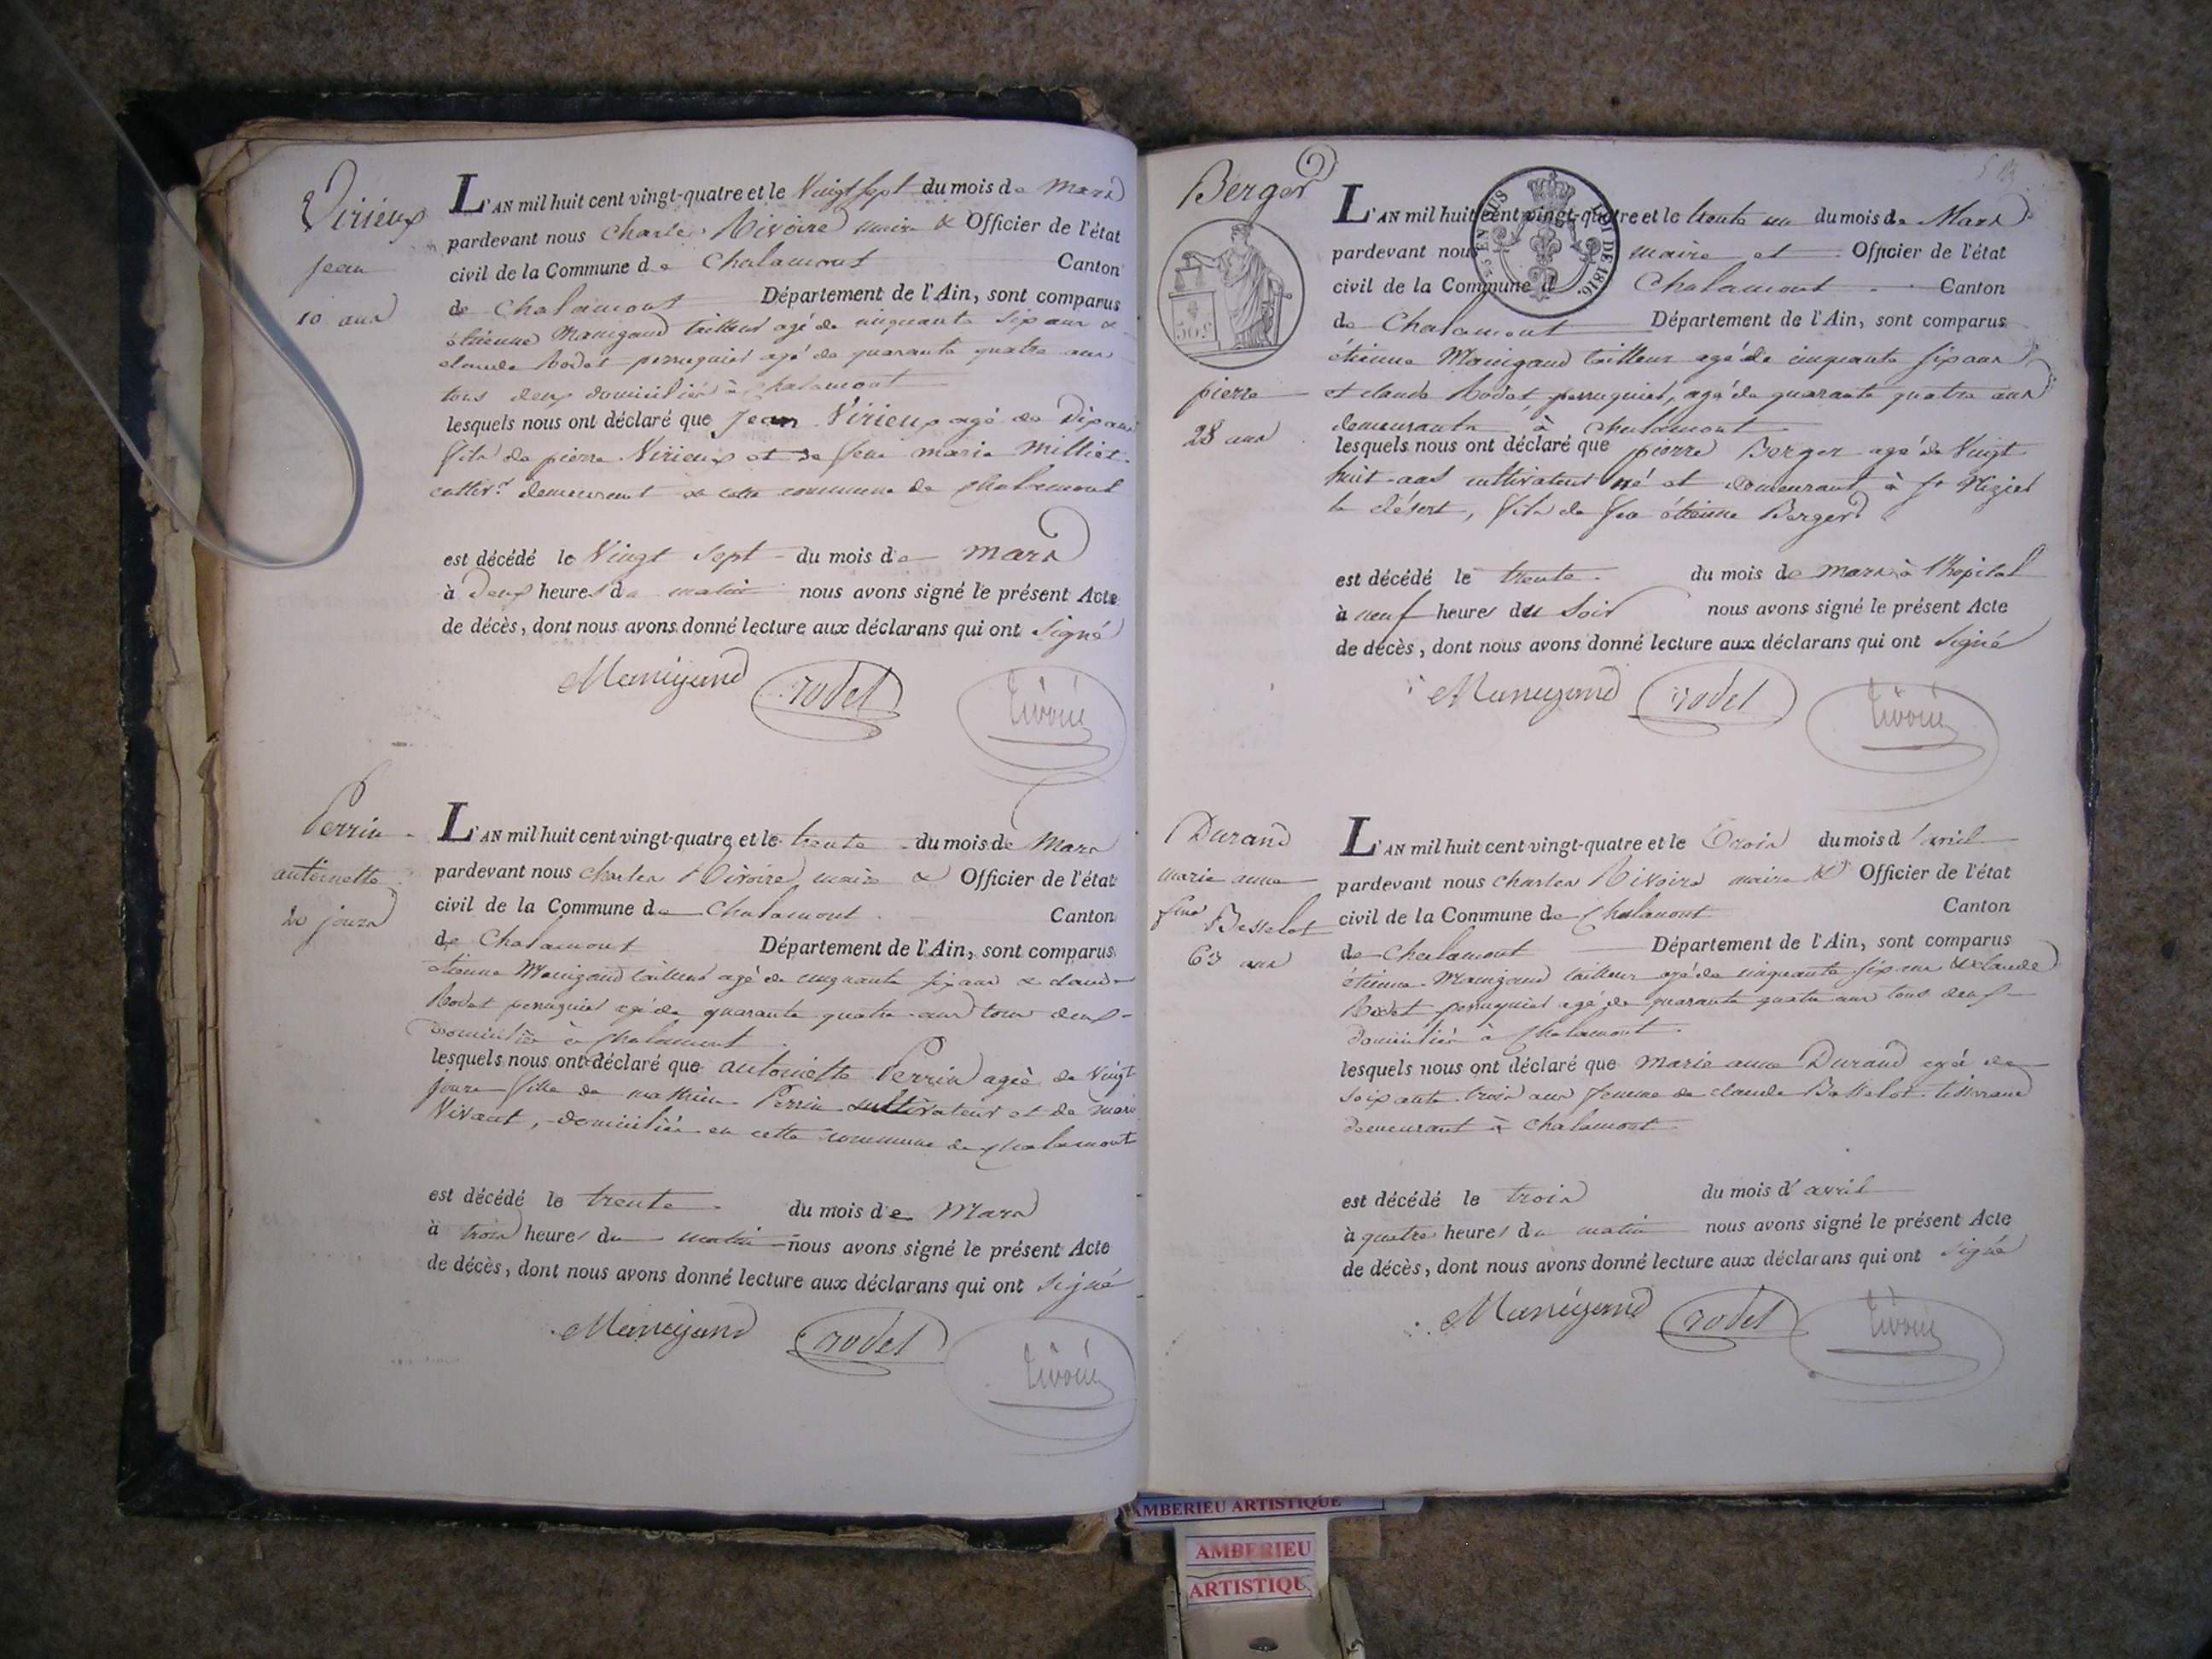 Virieux
Jean
10 ans
L'AN mil huit cent vingt-quatre et le Vingt sept du mois de Mars
pardevant nous Charles Rivoire maire & Officier de l'état
civil de la Commune de Chalamont Canton
de Chalamont Département de l'Ain, sont comparus
étienne Manigand tailleur agé de cinquante six ans &
claude Rodet perruquier agé de quarante quatre ans
tous deux domiciliés à Chalamont
lesquels nous ont déclaré que Jean Virieux agé de Dix ans
fils de pierre Virieux et de feue marie Milliet
cultivr. demeurant en cette commune de Chalamont
est décédé le Vingt Sept du mois de Mars
à Deux heures du matin nous avons signé le présent Acte
de décès, dont nous avons donné lecture aux déclarans qui ont signé
Manigand rodet rivoire
Perrin
antoinette
20 jours
L'AN mil huit cent vingt-quatre et le trente du mois de Mars
pardevant nous charles Rivoire maire & Officier de l'état
civil de la Commune de Chalamont Canton
de Chalamont Département de l'Ain, sont comparus
étienne Manigand tailleur agé de cinquante six ans & claude
Rodet perruquier agé de quarante quatre ans tous deux
domiciliés à Chalamont
lesquels nous ont déclaré que antoinette Perrin agée de Vingt
jours fille de mathieu Perrin cultivateur et de marie
Vivant, domiciliés en cette commune de Chalamont
est décédé le trente du mois de Mars
à trois heures du matin nous avons signé le présent Acte
de décès, dont nous avons donné lecture aux déclarans qui ont signé
Manigand rodet rivoire
Berger
50 c
pierre
28 ans
EN SUS
LOI DE 1816.
L'AN mil huit cent vingt-quatre et le trente un du mois de Mars
pardevant nous maire et Officier de l'état
civil de la Commune d Chalamont Canton
de Chalamont Département de l'Ain, sont comparus
étienne Manigand tailleur agé de cinquante six ans
et claude Rodet, perruquier, agé de quarante quatre ans
demeurants à Chalamont
lesquels nous ont déclaré que pierre Berger agé de Vingt
huit ans cultivateur né et demeurant à St Nizier
le désert, fils de feu étienne Berger
est décédé le trente du mois de mars à l'hopital
à neuf heures du Soir nous avons signé le présent Acte
de décès, dont nous avons donné lecture aux déclarans qui ont signé
Manigand rodet rivoire
Durand
marie anne
fme Basselot
63 ans
L'AN mil huit cent vingt-quatre et le Trois du mois d'avril
pardevant nous charles Rivoire maire & Officier de l'état
civil de la Commune de Chalamont Canton
de Chalamont Département de l'Ain, sont comparus
étienne Manigand tailleur agé de cinquante six ans & claude
Rodet perruquier agé de quarante quatre ans tous deux
domiciliés à Chalamont
lesquels nous ont déclaré que marie anne Durand agée de
soixante trois ans femme de claude Basselot tisserand
demeurant à Chalamont
est décédé le trois du mois d'avril
à quatre heures du matin nous avons signé le présent Acte
de décès, dont nous avons donné lecture aux déclarans qui ont signé
Manigand rodet rivoire
AMBERIEU ARTISTIQUE
AMBERIEU
ARTISTIQU